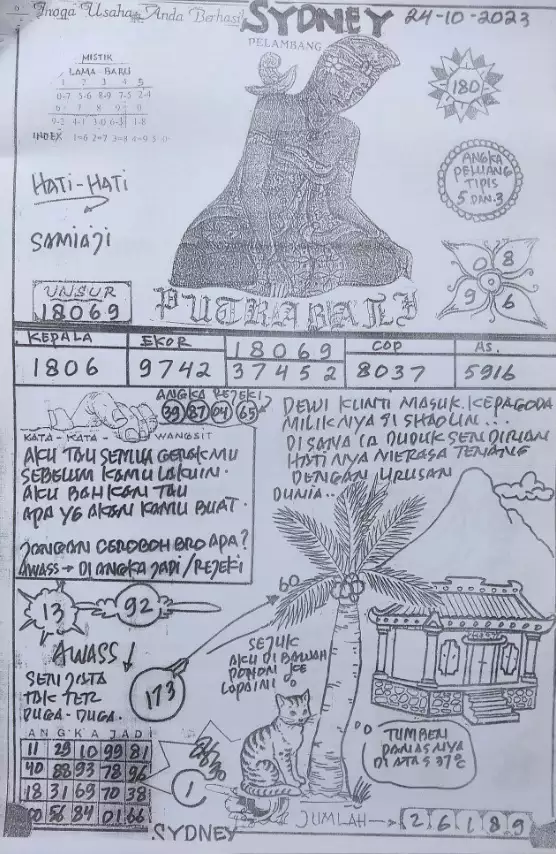 Inoga Usaha Anda Berhasil
SYDNEY
24-10-2023
PELAMBANG
MISTIK
LAMA - BARU
1 2 3 4 5
0-7 5-6 8-9 7-5 2-4
6 7 8 9 0
9-2 4-1 3-0 6-3 1-8
INDEX 1=6 2=7 3=8 4=9 5=0
180
HATI-HATI
ANGKA
PELUANG
TIPIS
5 DAN 3
SAMIAJI
0 8
9 6
UNSUR
18069
PUTRA BALI
KEPALA EKOR 18069 COP AS.
1806 9742 37452 8037 5916
ANGKA REJEKI
39 87 04 65
KATA - KATA - WANGSIT
AKU TAU SEMUA GERAKMU
SEBELUM KAMU LAKUIN.
AKU BAHKAN TAU
APA YG AKAN KAMU BUAT.
JANGAN CEROBOH BRO APA?
AWASS → DI ANGKA JADI / REJEKI
DEWI KUNTI MASUK KEPAGODA
MILIKNYA SI SHAOLIN...
DISANA IA DUDUK SENDIRIAN
HATINYA MERASA TENANG
DENGAN URUSAN
DUNIA..
60
13 92
AWASS
173
TAK TER
DUGA-DUGA.
SEJUK
AKU DIBAWAH
POHON KE
LAPA INI
TUMBEN
PANASNYA
DIATAS 37°C
ANGKA JADI
11 29 10 99 81
40 88 93 78 96
18 31 69 70 38
00 56 84 01 66
1
SYDNEY
JUMLAH → 26189